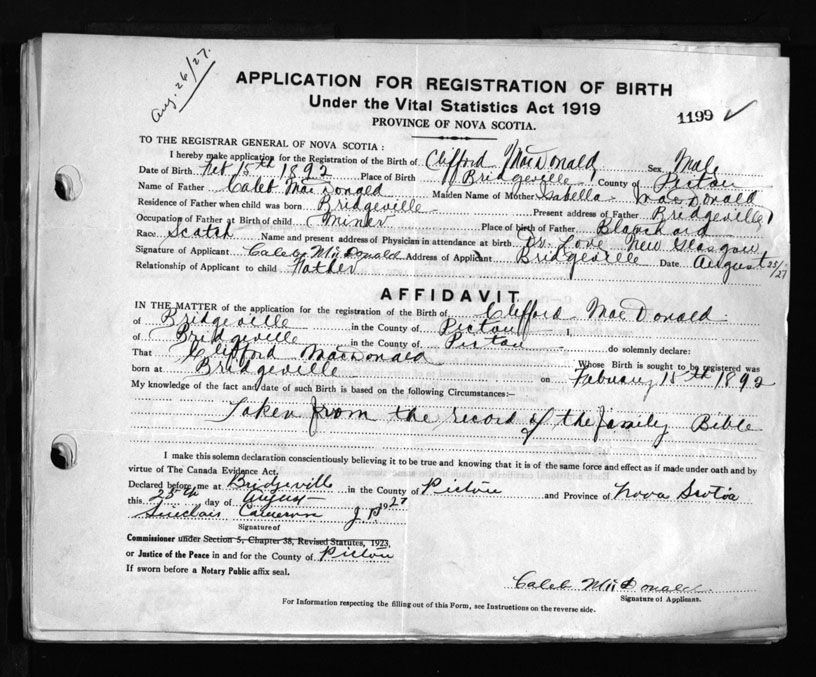 Aug. 26/27.
APPLICATION FOR REGISTRATION OF BIRTH
Under the Vital Statistics Act 1919
1199 ✓
PROVINCE OF NOVA SCOTIA.
TO THE REGISTRAR GENERAL OF NOVA SCOTIA :
I hereby make application for the Registration of the Birth of Clifford MacDonald Sex Male
Date of Birth Feb 15th 1892 Place of Birth Bridgeville County of Pictou
Name of Father Caleb MacDonald Maiden Name of Mother Isabella MacDonald
Residence of Father when child was born Bridgeville Present address of Father Bridgeville
Occupation of Father at Birth of child Miner Place of birth of Father Blanchard
Race Scotch Name and present address of Physician in attendance at birth Dr. Love New Glasgow
Signature of Applicant Caleb McDonald Address of Applicant Bridgeville Date August 25/27
Relationship of Applicant to child Father
AFFIDAVIT
IN THE MATTER of the application for the registration of the Birth of Clifford MacDonald
of Bridgeville in the County of Pictou I,
of Bridgeville in the County of Pictou do solemnly declare:
That Clifford MacDonald Whose Birth is sought to be registered was
born at Bridgeville on Febuary 15th 1892
My knowledge of the fact and date of such Birth is based on the following Circumstances:—
Taken from the record of the family Bible
I make this solemn declaration conscientiously believing it to be true and knowing that it is of the same force and effect as if made under oath and by
virtue of The Canada Evidence Act.
Declared before me at Bridgeville in the County of Pictou and Province of Nova Scotia
this 25th day of August 1927
Sinclair Cameron J P
Signature of
Commissioner under Section 5, Chapter 38, Revised Statutes, 1923,
or Justice of the Peace in and for the County of Pictou
If sworn before a Notary Public affix seal.
Caleb McDonald
Signature of Applicant.
For Information respecting the filling out of this Form, see Instructions on the reverse side.